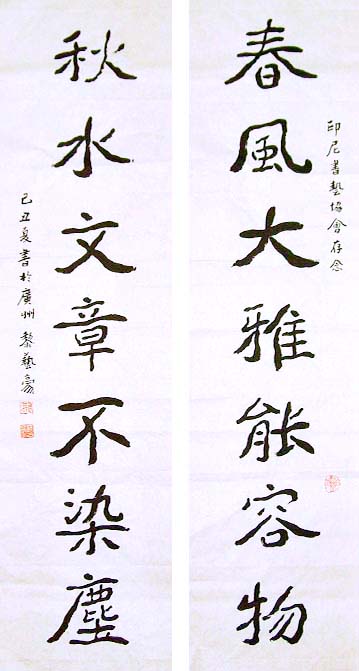 印尼書藝協會存念
春風大雅能容物
秋水文章不染塵
己丑夏書於廣州 黎藝